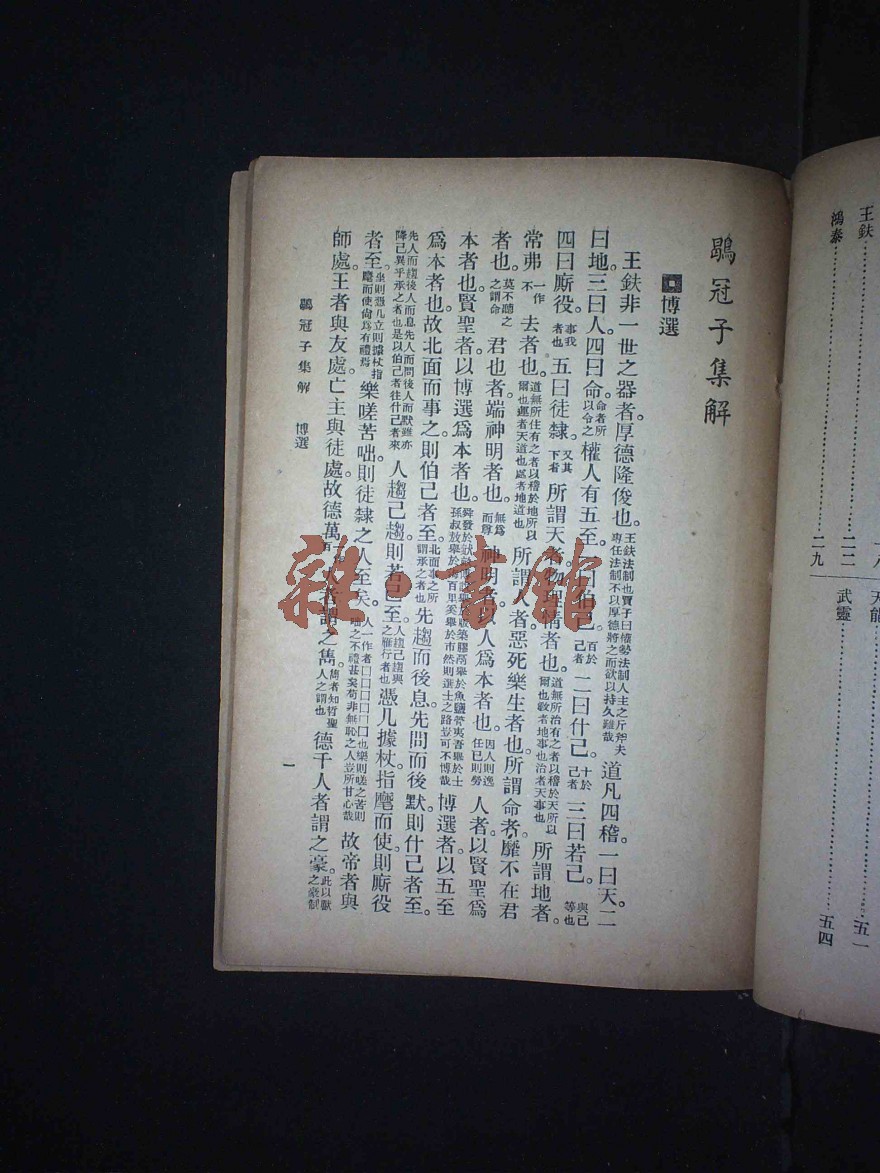 鶡冠子集解
博選
王鈇非一世之器者。厚德隆俊也。王鈇法制也賈子曰權勢法制人主之斤斧夫專任法制不以厚德將之而欲以持久難哉道凡四稽。一曰天。二
曰地三曰人。四曰命。命者所以令之權人有五至。一曰伯己。百於己者二曰什己。十於己者三曰若己。與己等也
四曰廝役。事我者也五曰徒隸。又其下者所謂天者物理情者也。道無所治有之者以稽於天所以爾也敎者地事也治者天事也所謂地者。
常弗一作不去者也。道無所住有之者以稽於地所以爾也運者天道也處者地道也所謂人者惡死樂生者也。所謂命者。靡不在君
者也。莫不聽之之謂命君也者端神明者也。無爲而尊神明者以人爲本者也。因人則逸任己則勞人者以賢聖爲
本者也。賢聖者以博選爲本者也。舜發於畎畝傅說舉於版築膠鬲舉於魚鹽管夷吾舉於士孫叔敖舉於海百里奚舉於市然則選士之路豈可不博哉博選者以五至
爲本者也。故北面而事之則伯己者至。北面事之所謂承之者也先趨而後息。先問而後默則什己者至。
先人而趨後人而息先人而問後人而默雖亦降己異乎承之者也是以伯己者往什己者來人趨己趨則若己至。人趨己趨與之雁行者也憑几據杖。指麾而使。則廝役
者至。坐則憑几立則據杖指麾而使尙爲有禮焉樂嗟苦咄則徒隸之人至矣。人一作者囗囗囗囗囗也樂則嗟之苦則咄之不禮甚矣苟非無恥之人豈所甘心哉故帝者與
師處。王者與友處。亡主與徒處。故德萬人者謂之雋。雋者知哲聖人之謂也德千人者謂之豪。此以獸之豪制
鶡冠子集解　博選
一
王鈇
二二
鴻泰
二九
天能
五一
武靈
五四
雜·書館